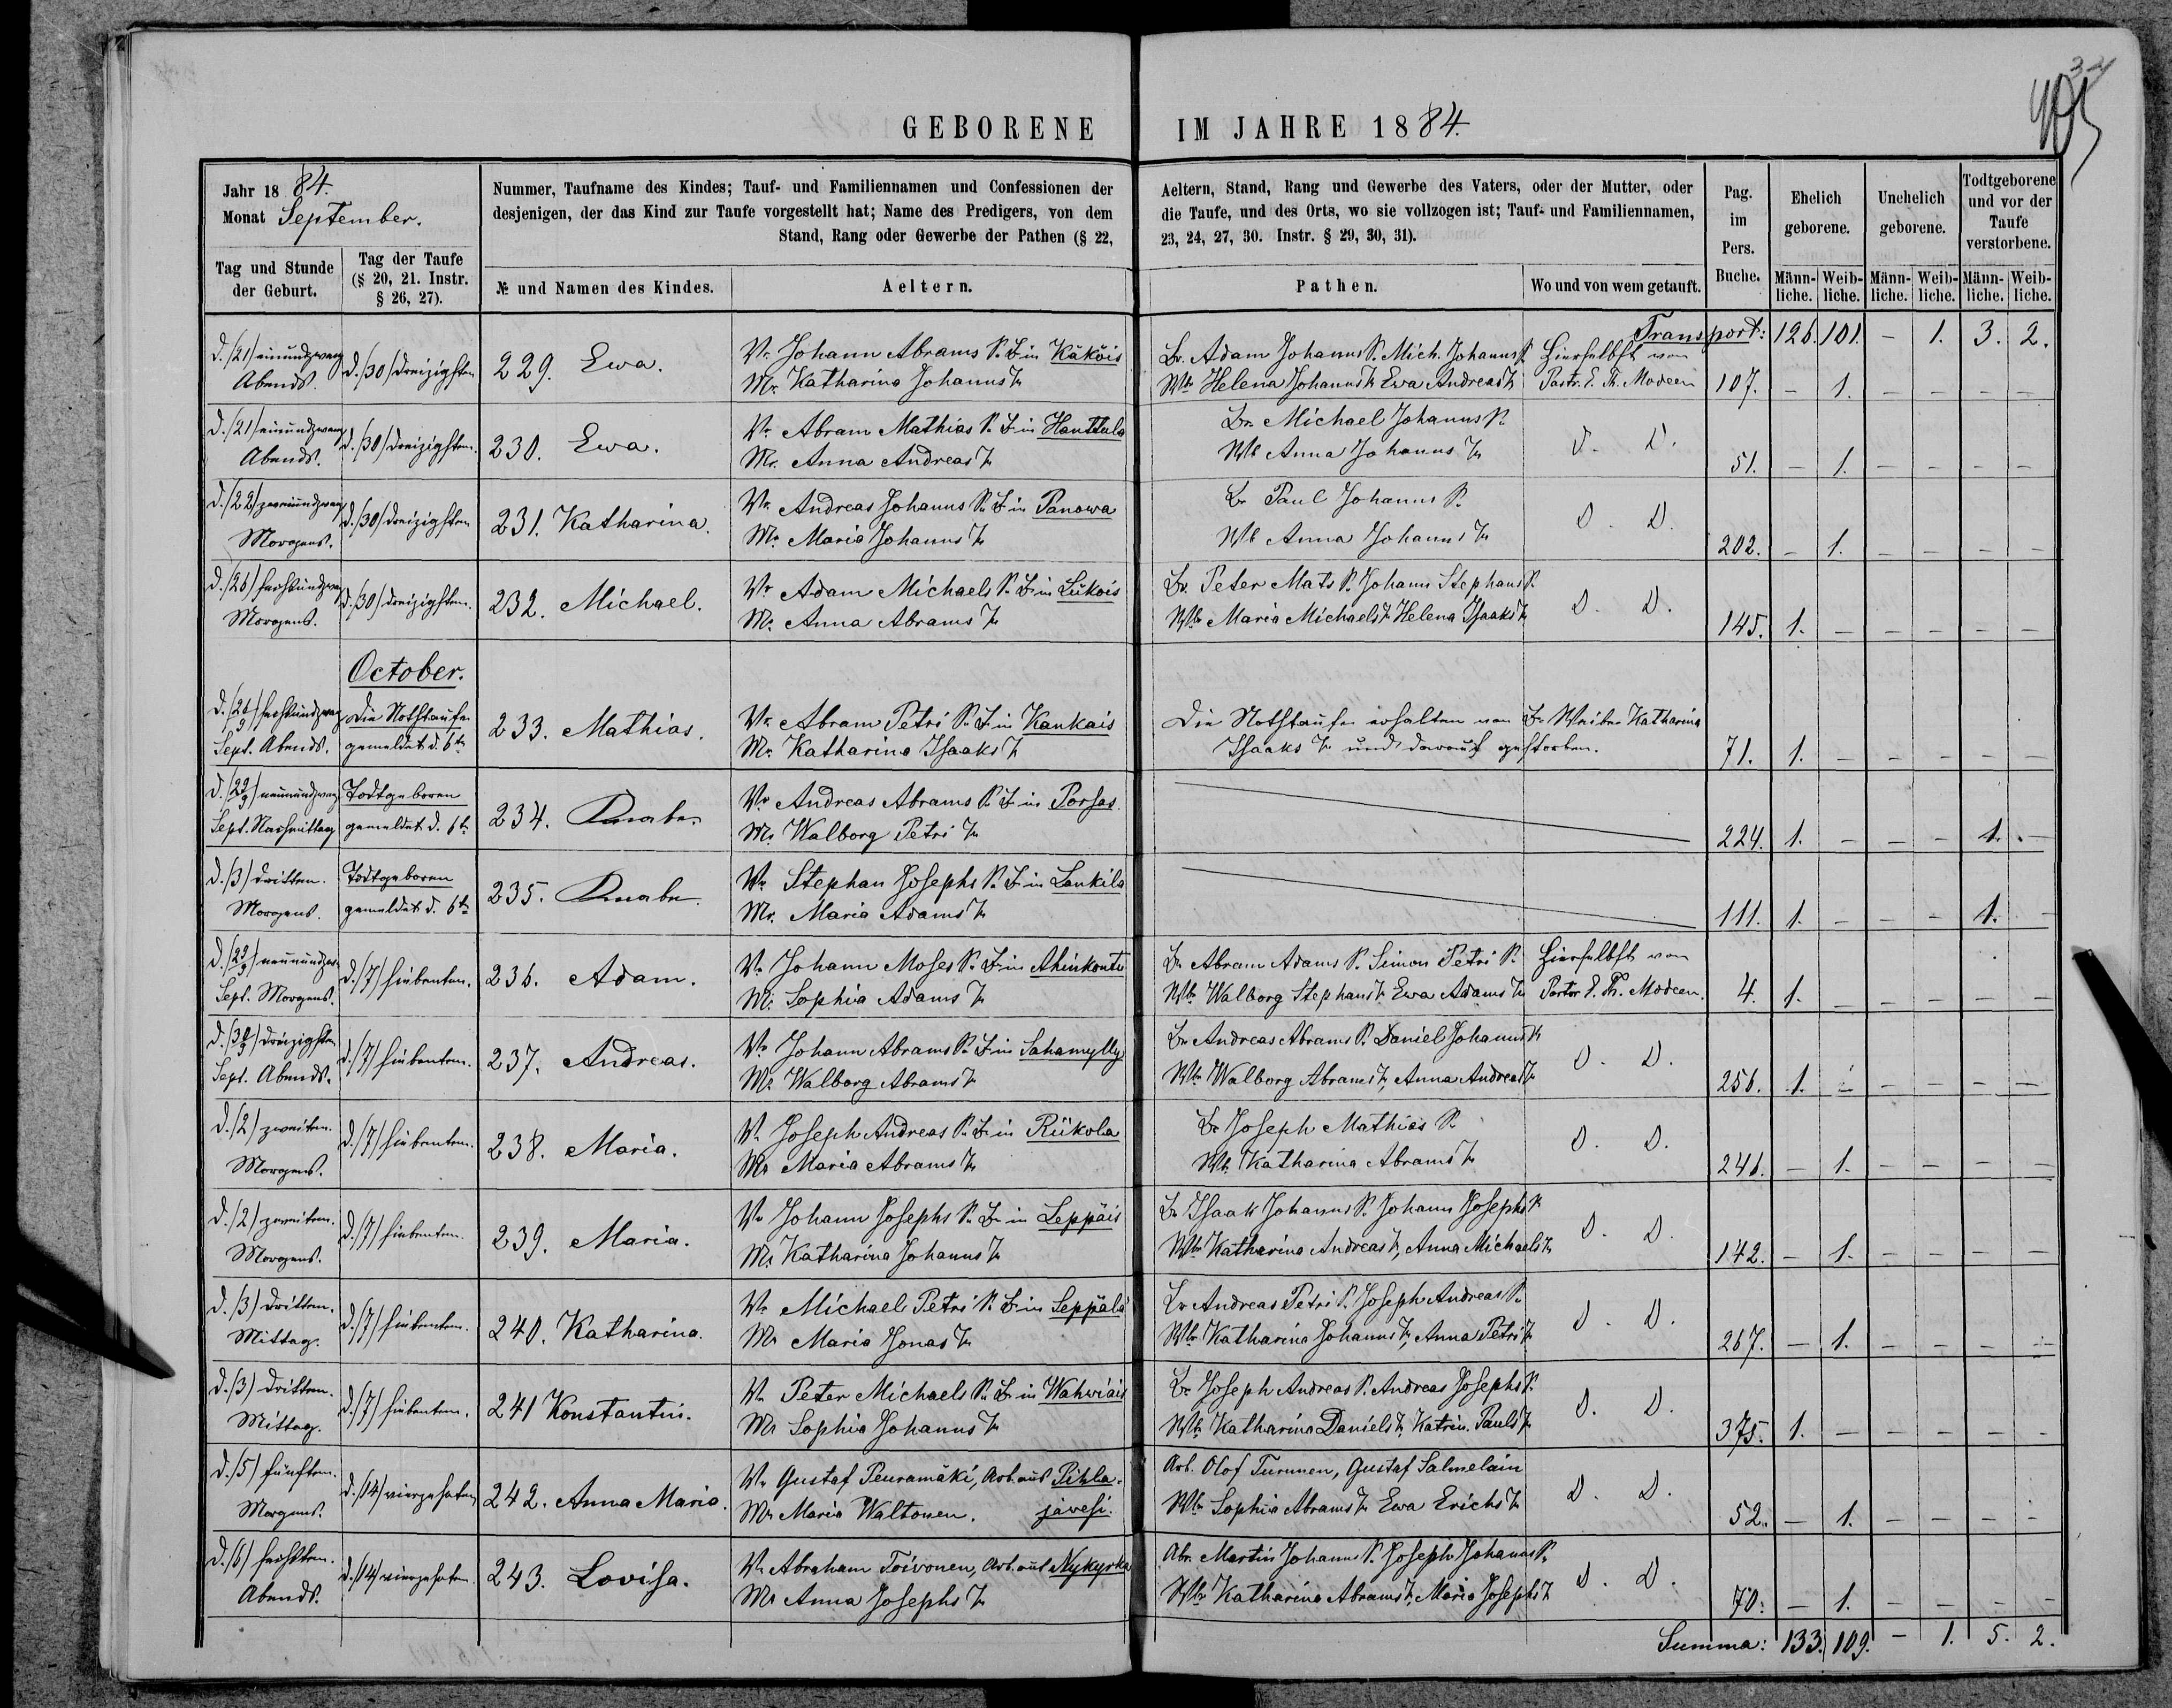 34
405
GEBORENE IM JAHRE 1884.
Jahr 1884.
Monat September.
Nummer, Taufname des Kindes; Tauf- und Familiennamen und Confessionen der Aeltern, Stand, Rang und Gewerbe des Vaters, oder der Mutter, oder
desjenigen, der das Kind zur Taufe vorgestellt hat; Name des Predigers, von dem die Taufe, und des Orts, wo sie vollzogen ist; Tauf- und Familiennamen,
Stand, Rang oder Gewerbe der Pathen (§ 22, 23, 24, 27, 30. Instr. § 29, 30, 31).
Pag. im Pers. Buche.
Ehelich geborene.
Unehelich geborene.
Todtgeborene und vor der Taufe verstorbene.
Tag und Stunde der Geburt.
Tag der Taufe (§ 20, 21. Instr. § 26, 27).
№ und Namen des Kindes.
Aeltern.
Pathen.
Wo und von wem getauft.
Männ-liche. Weib-liche. Männ-liche. Weib-liche. Männ-liche. Weib-liche.
Transport: 126. 101. - 1. 3. 2.
d. (21) einundzwanz d. (30) dreizigsten 229. Ewa. Vr. Johann Abrams S. B. in Käköis Br. Adam Johanns S. Mich. Johanns S. Hierselbst von
Abends. Mr. Katharina Johanns T. Wbr Helena Johanns T. Ewa Andreas T. Pastr. E. Th. Modeen 107. - 1. - - - -
d. (21) einundzwanz d. (30) dreizigsten. 230. Ewa. Vr. Abram Mathias S. B. in Hanttula Br. Michael Johanns S.
Abends. Mr. Anna Andreas T. Wb Anna Johanns T. D. D. 51. - 1. - - - -
d. (22) zweiundzwanz d. (30) dreizigsten 231. Katharina. Vr. Andreas Johanns S. B. in Panowa Br Paul Johanns S.
Morgens. Mr. Maria Johanns T. Wb Anna Johanns T. D. D. 202. - 1. - - - -
d. (26) sechsundzwanz d. (30) dreizigsten. 232. Michael. Vr Adam Michaels S. B. in Lükois Br. Peter Mats S. Johann Stephans S.
Morgens. Mr. Anna Abrams T. Wbr Maria Michaels T. Helena Isaaks T. D. D. 145. 1. - - - - -
October.
d. (26/9) sechsundzwanz Die Nothtaufe 233. Mathias. Vr. Abram Petri S. B. in Kankais Die Nothtaufe erhalten von Br Weibe Katharina
Sept. Abends. gemeldet d. 6tn Mr. Katharina Isaaks T. Isaaks T. und darauf gestorben. 71. 1. - - - - -
d. (29/9) neunundzwanz Todtgeboren 234. Knabe. Vr Andreas Abrams S. B. in Porsas.
Sept. Nachmittag gemeldet d. 6tn Mr. Walborg Petri T. 224. 1. - - - 1. -
d. (3) dritten. Todtgeboren 235. Knabe. Vr Stephan Josephs S. B. in Lankila
Morgens. gemeldet d. 6tn Mr. Maria Adams T. 111. 1. - - - 1. -
d. (29/9) neunundzw. d. (7) siebenten. 236. Adam. Vr Johann Moses S. B. in Ahinkontu Br Abram Adams S. Simon Petri S. Hierselbst von
Sept. Morgens. Mr. Sophia Adams T. Wbr Walborg Stephans T. Ewa Adams T. Pastor E. Th. Modeen. 4. 1. - - - - -
d. (30/9) dreizigsten d. (7) siebenten. 237. Andreas. Vr Johann Abrams S. B. in Sahamylly Br Andreas Abrams S. Daniel Johanns S.
Sept. Abends. Mr Walborg Abrams T. Wbr Walborg Abrams T., Anna Andreas T. D. D. 256. 1. - - - - -
d. (2) zweiten. d. (7) siebenten. 238. Maria. Vr Joseph Andreas S. B. in Riikola Br Joseph Mathias S.
Morgens. Mr Maria Abrams T. Wb. Katharina Abrams T. D. D. 246. - 1. - - - -
d. (2) zweiten. d. (7) siebenten. 239. Maria. Vr Johann Josephs S. B. in Leppäis Br Isaak Johanns S. Johann Josephs S.
Morgens. Mr Katharina Johanns T. Wbr Katharina Andreas T., Anna Michaels T. D. D. 142. - 1. - - - -
d. (3) dritten. d. (7) siebenten. 240. Katharina. Vr Michael Petri S. B. in Seppälä Br Andreas Petri S. Joseph Andreas S.
Mittag. Mr Maria Jonas T. Wbr Katharina Johanns T., Anna Petri T. D. D. 267. - 1. - - - -
d. (3) dritten. d. (7) siebenten. 241 Konstantin. Vr Peter Michaels S. B. in Wahwiais Br Joseph Andreas S. Andreas Josephs S.
Mittag. Mr Sophia Johanns T. Wbr Katharina Daniels T., Katrin. Pauls T. D. D. 375. 1. - - - - -
d. (5) fünften. d. (14) vierzehnten 242. Anna Maria. Vr Gustaf Peuramäki, Arb. aus Pihla- Arb. Olof Turunen, Gustaf Salmelain
Morgens. Mr Maria Waltonen. jäwesi. Wbr Sophia Abrams T. Ewa Erichs T. D. D. 52. - 1. - - - -
d. (6) sechsten. d. (14) vierzehnten. 243. Lovisa. Vr Abraham Toivonen, Arb. aus Nykyrka Abr. Martin Johanns S. Joseph Johanns S.
Abends. Mr Anna Josephs T. Wbr Katharina Abrams T., Maria Josephs T. D. D. 70. - 1. - - - -
Summa: 133. 109. - 1. 5. 2.